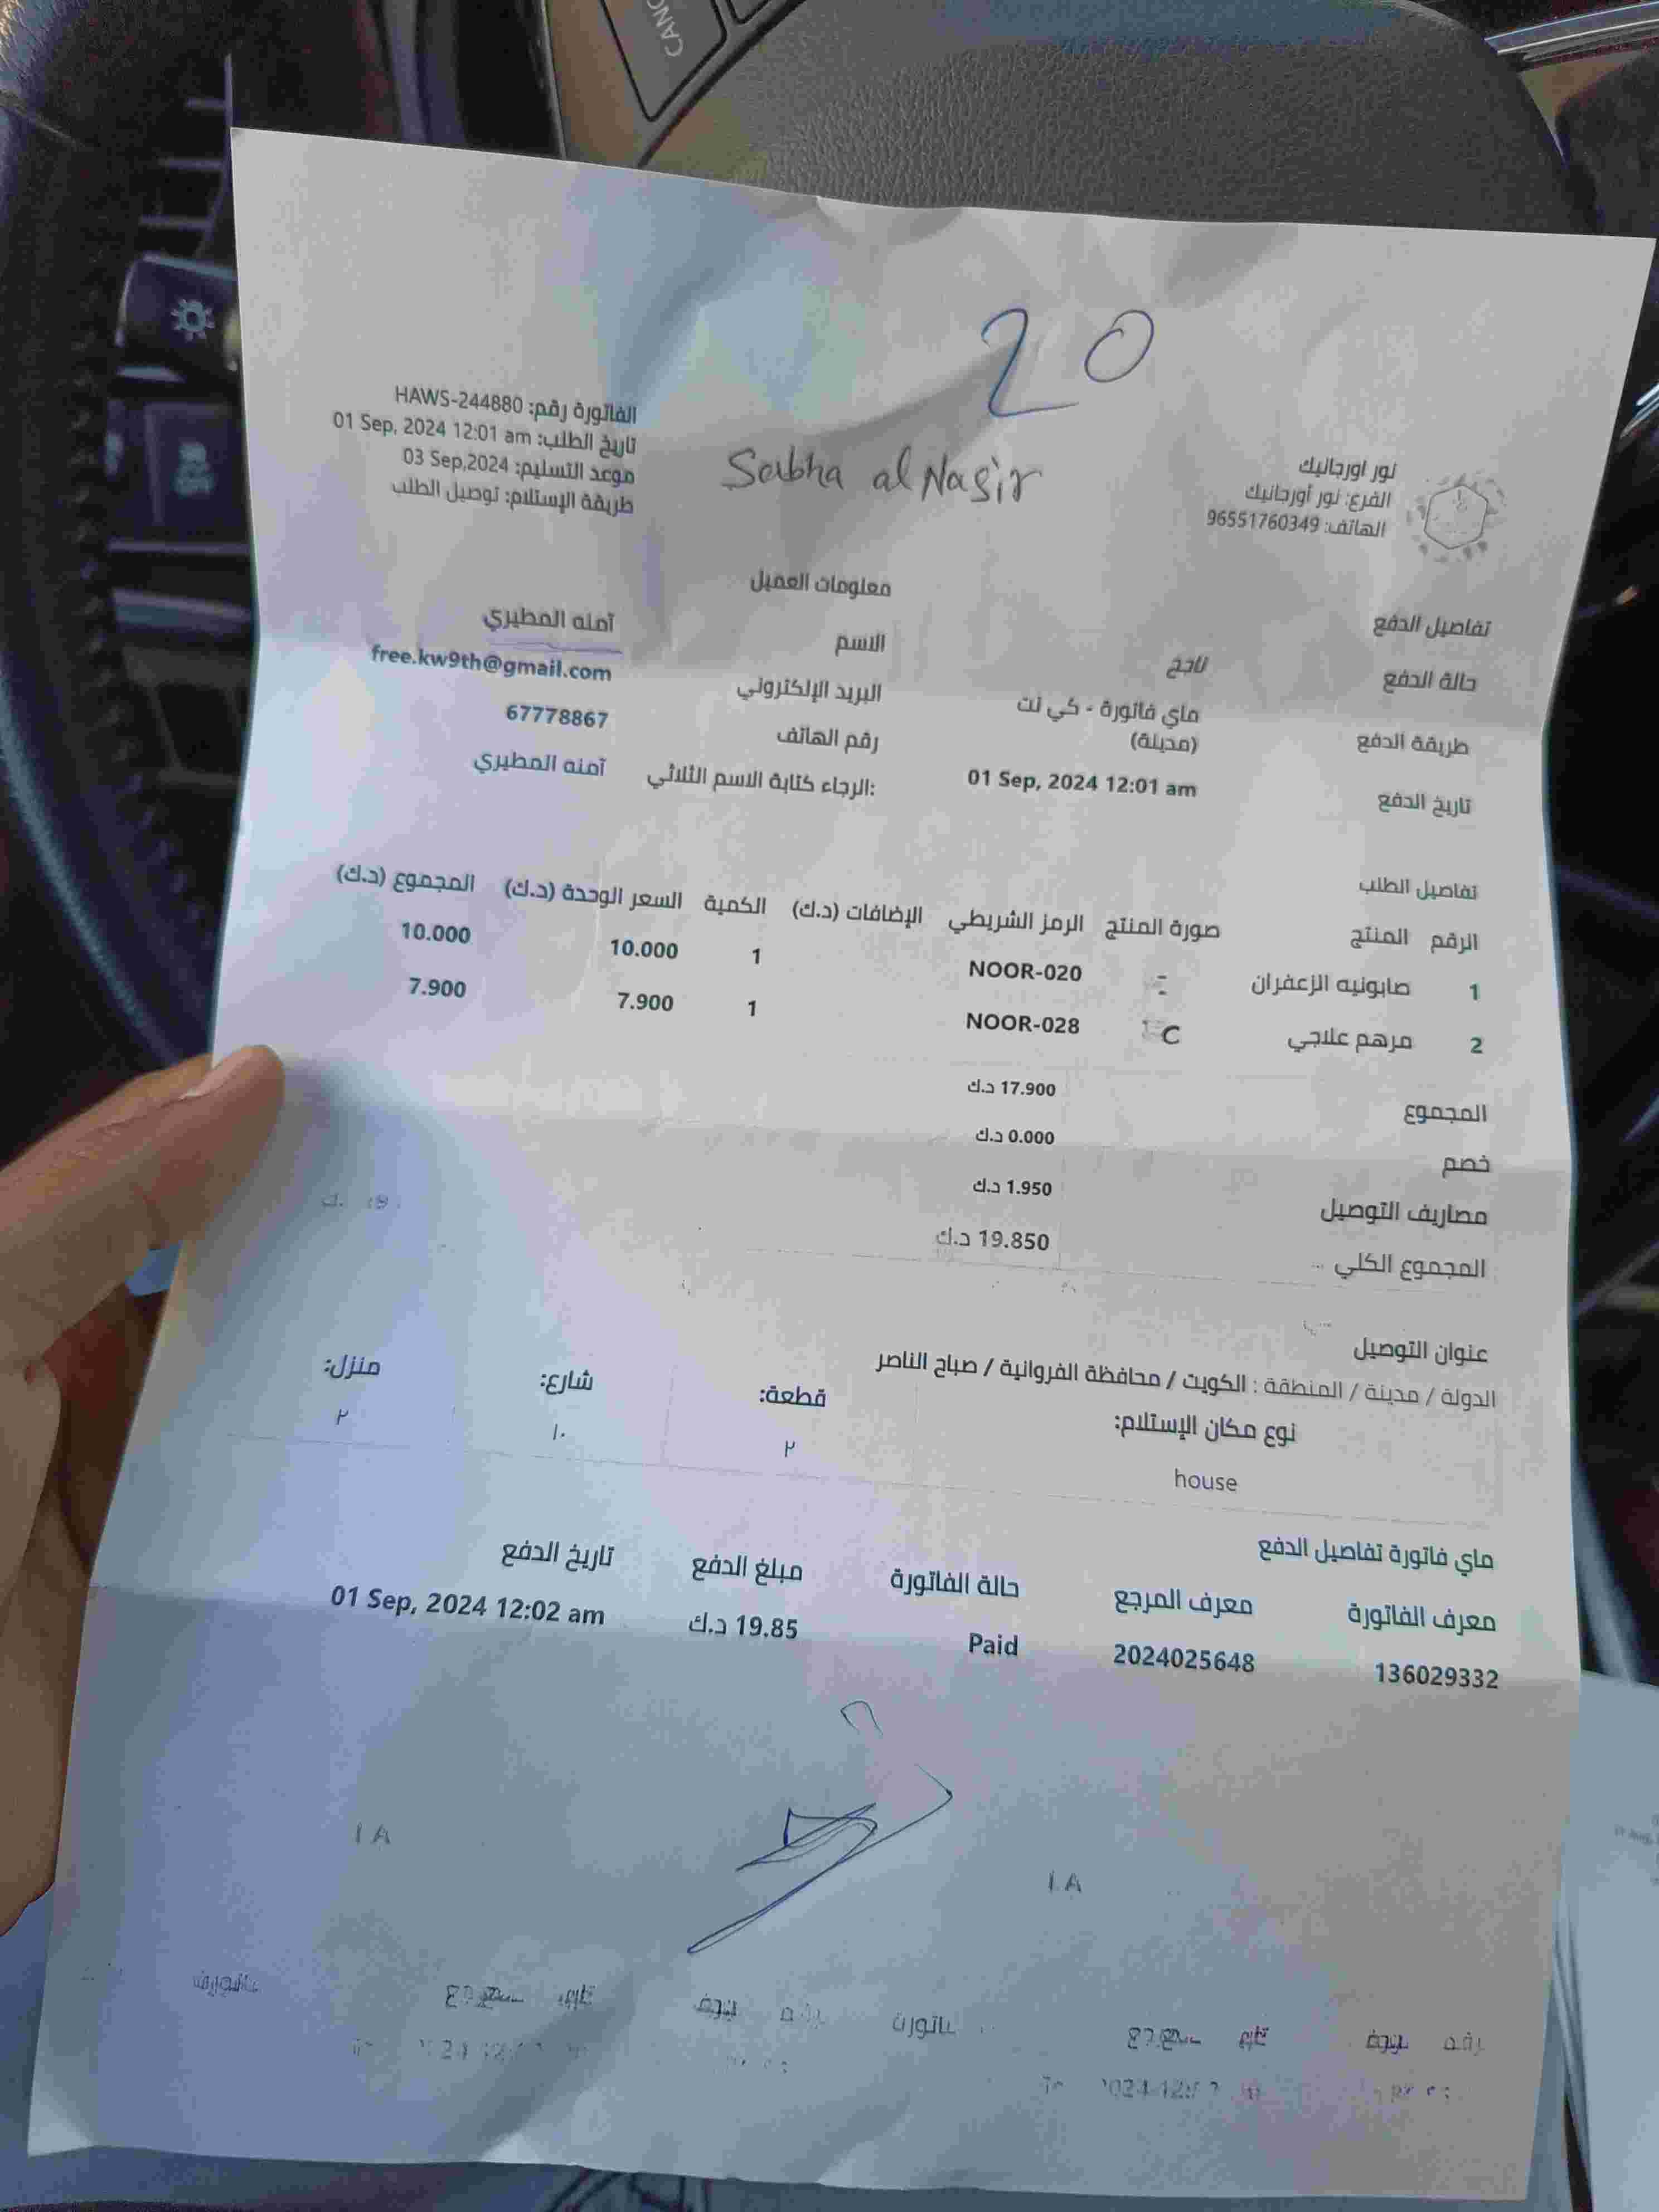 CANC
20
Sabha al Nasir
نور اورجانيك
الفرع: نور أورجانيك
الهاتف: 96551760349
الفاتورة رقم: HAWS-244880
تاريخ الطلب: 01 Sep, 2024 12:01 am
موعد التسليم: 03 Sep,2024
طريقة الإستلام: توصيل الطلب
تفاصيل الدفع
حالة الدفع ناجح
طريقة الدفع ماي فاتورة - كي نت (مدينة)
تاريخ الدفع 01 Sep, 2024 12:01 am
معلومات العميل
الاسم آمنه المطيري
البريد الإلكتروني free.kw9th@gmail.com
رقم الهاتف 67778867
الرجاء كتابة الاسم الثلاثي: آمنه المطيري
تفاصيل الطلب
الرقم المنتج صورة المنتج الرمز الشريطي الإضافات (د.ك) الكمية السعر الوحدة (د.ك) المجموع (د.ك)
1 صابونيه الزعفران NOOR-020 1 10.000 10.000
2 مرهم علاجي NOOR-028 1 7.900 7.900
المجموع 17.900 د.ك
خصم 0.000 د.ك
مصاريف التوصيل 1.950 د.ك
المجموع الكلي 19.850 د.ك
عنوان التوصيل
الدولة / مدينة / المنطقة : الكويت / محافظة الفروانية / صباح الناصر
نوع مكان الإستلام: قطعة: شارع: منزل:
house ٢ ١٠ ٢
ماي فاتورة تفاصيل الدفع
معرف الفاتورة معرف المرجع حالة الفاتورة مبلغ الدفع تاريخ الدفع
136029332 2024025648 Paid 19.85 د.ك 01 Sep, 2024 12:02 am